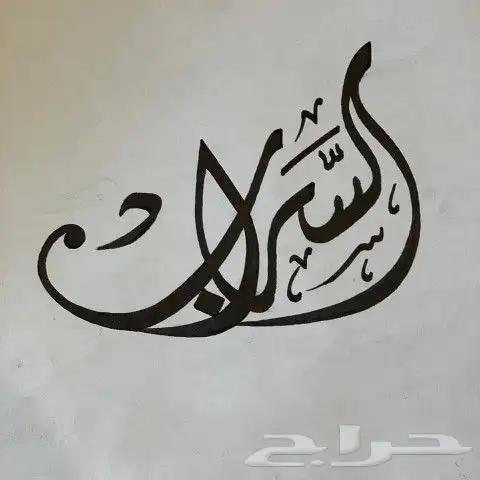 السَّراب
حراج